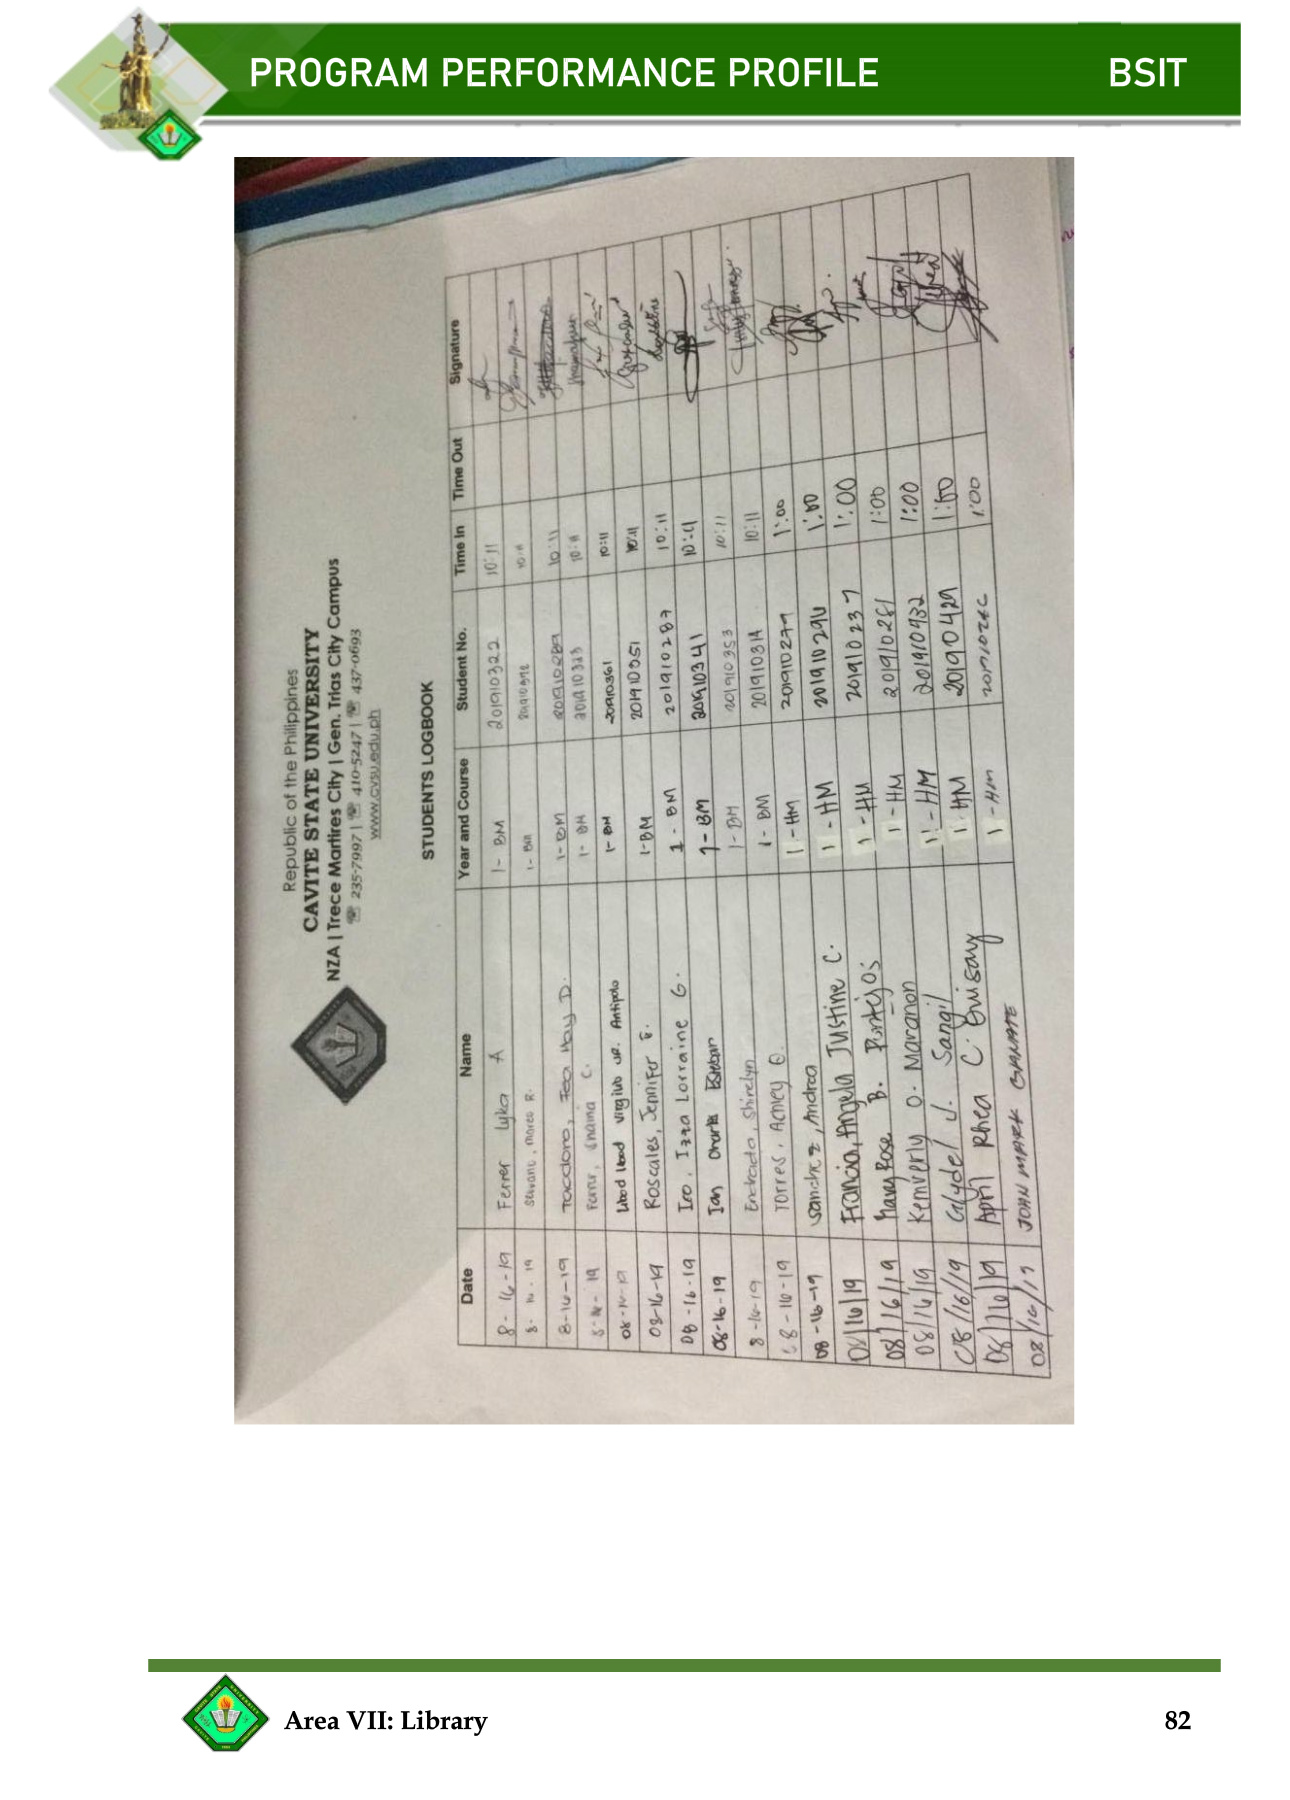 PROGRAM PERFORMANCE PROFILE BSIT
Republic of the Philippines
CAVITE STATE UNIVERSITY
NZA | Trece Martires City | Gen. Trias City Campus
☏ 235-7997 | ☏ 410-5247 | ☏ 437-0693
www.cvsu.edu.ph
STUDENTS LOGBOOK
Date Name Year and Course Student No. Time In Time Out Signature
8-16-19 Ferrer Lyka A 1- BM 201910322 10:11
8-16-19 Marco R. 1- BM
8-16-19 Teodoro, Fea May D. 1-BM 201910289 10:11
8-16-19 Ferrer, Shaina C. 1- BM 201910323 10:11
08-16-19 Virgilio JR. Antipolo 1- BM 201910361 10:11
08-16-19 Roscales, Jennifer 1-BM 201910351 10:11
08-16-19 Ico, Izza Lorraine G. 1 - BM 201910287 10:11
08-16-19 Ian Charls Esteban 1- BM 201910341 10:11
8-16-19 Enchado, Shirelyn 1- BM 201910353 10:11
8-16-19 Torres, Acney O. 1- BM 201910314 10:11
08-16-19 Sanchez, Andrea 1 - HM 201910279 1:00
08/16/19 Francia, Angela Justine C. 1 - HM 1:00
08/16/19 Mary Rose B. Puntejos 1 - HM 201910237 1:00
08/16/19 Kemverly O. Maranon 1 - HM 201910281 1:00
08/16/19 Glydel J. Sangil 1 - HM 201910432 1:00
08/16/19 April Rhea C. Guisay 1 - HM 201910429 1:00
08/16/19 JOHN MARK GRANATE 1 - HM 1:00
Area VII: Library 82